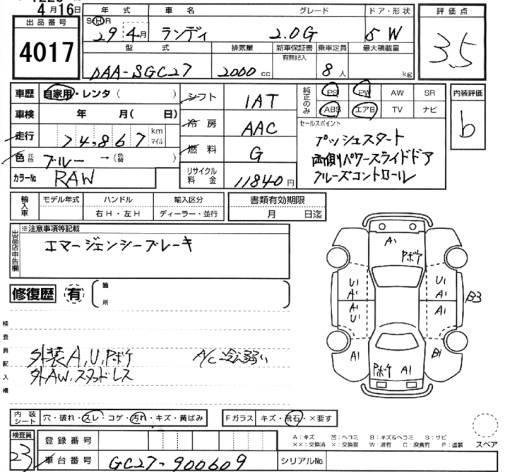 4月16日
出品番号
4017
年式 車名 グレード ドア・形状
S H R 29年4月 ランディ 2.0G 5W
型式 排気量 新車保証書 有無記入 乗車定員 最大積載量
DAA-SGC27 2000cc 8人 kg
評価点
3.5
車歴 自家用・レンタ( )
車検 年 月( 日)
走行 74,867 km マイル
色 ブルー→( )
カラーNo RAW
シフト 1AT
冷房 AAC
燃料 G
リサイクル料金 11840円
純正のみ PS PW AW SR
ABS エアB TV ナビ
セールスポイント
プッシュスタート
両側パワースライドドア
クルーズコントロール
内装評価
b
輸入車 モデル年式 ハンドル 輸入区分
右H・左H ディーラー・並行
書類有効期限
月 日迄
※注意事項等記載
エマージェンシーブレーキ
修復歴 有 箇所
検査員記入欄
外装A,U,Pボケ A/C冷え弱い
外AW,スタッドレス
A1
Pボケ
U1
A1
A1
U1
U1
A1
B3
A1
A1
Pボケ
A1
内装シート 穴・破れ・スレ・コゲ・汚れ・キズ・黄ばみ
Fガラス キズ・飛石・×要す
スペア
検査員
23
登録番号
車台番号 GC27-900609
シリアルNo
A:キズ 凹:ヘコミ B:キズ&ヘコミ S:サビ
××:交換済 ×:要交換 W:波有 C:腐食有 P:塗装